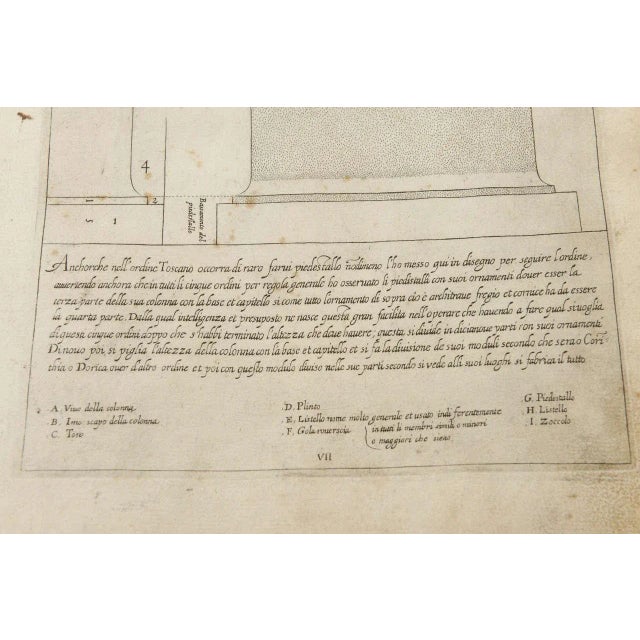 4
1 2
5 1
Basamento del
piedestallo
Anchorche nell'ordine Toscano occorra di raro farui piedestallo nõdimeno l'ho messo qui in disegno per seguire l'ordine,
auuertendo anchora che in tutti li cinque ordini per regola generale ho osseruato li piedistalli con suoi ornamenti douer esser la
terza parte della sua colonna con la base et capitello si come tutto l'ornamento di sopra cio è architraue fregio et cornice ha da essere
la quarta parte. Dalla qual intelligenza et presuposto ne nasce questa gran facilità nell'operare che hauendo a fare qual si uoglia
di questi cinque ordini doppo che s'habbi terminato l'altezza che deue hauere, questa si diuide in dicianoue parti con suoi ornamenti
Di nouo poi si piglia l'altezza della colonna con la base et capitello et si fà la diuisione de suoi moduli secondo che serà o Cori
thia o Dorica ouer d'altro ordine et poi con questo modulo diuiso nelle sue parti secondo si vede alli suoi luoghi si fabrica il tutto
A. Viuo della colonna
B. Imo scapo della colonna
C. Toro
D. Plinto
E. Listello nome molto generale et usato indiferentemente
in tutti li membri simili o minori
F. Gola rouerscia
o maggiori che sieno
G. Piedestallo
H. Listello
I. Zoccolo
VII